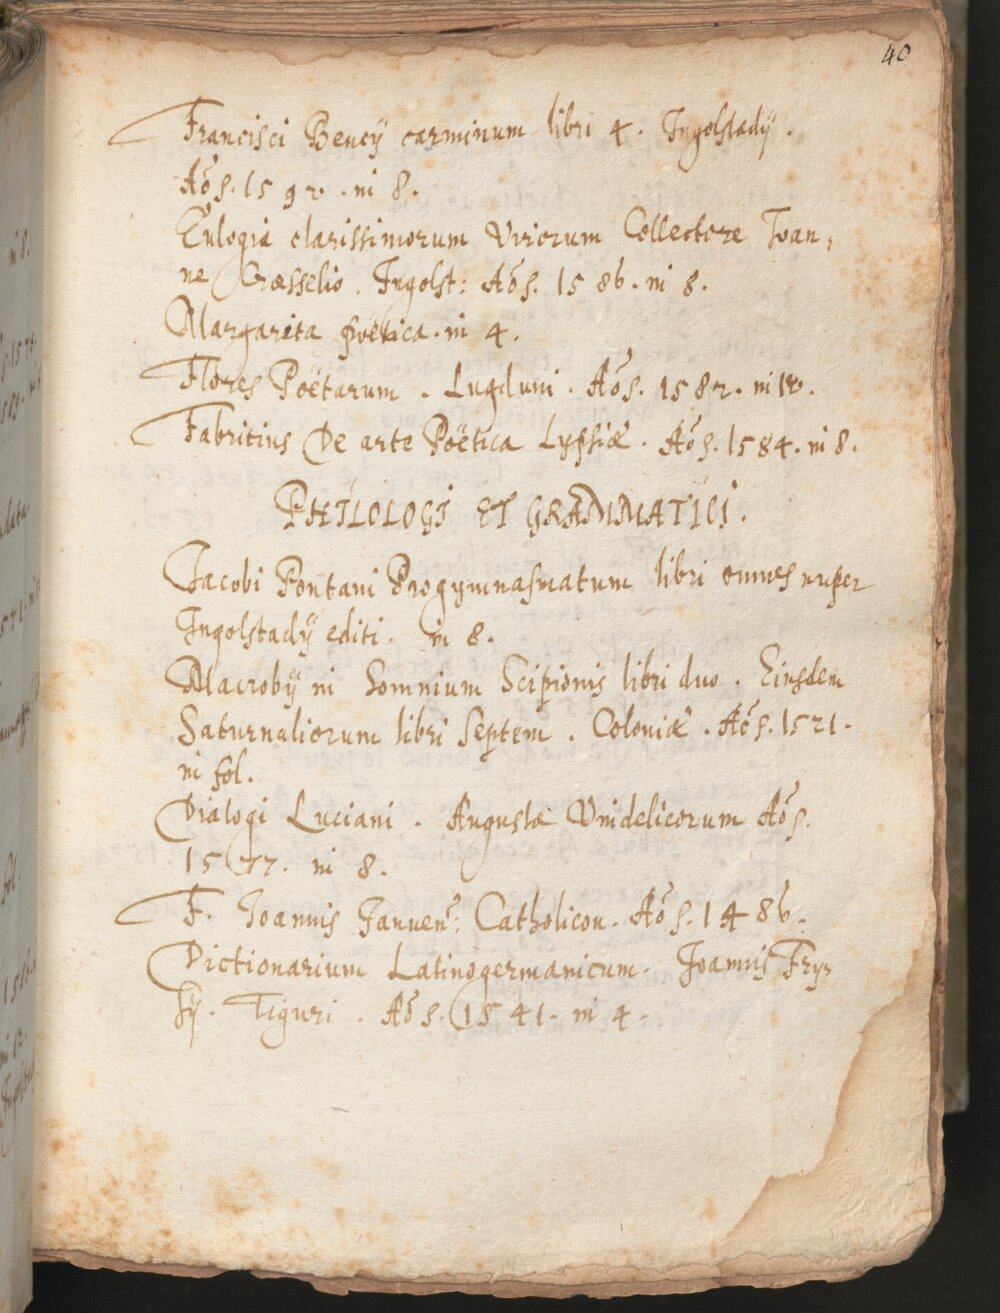 40
Francisci Bencij carminum libri 4. Ingolstadij.
Aōs. 1592. in 8.
Eulogia clarissimorum Virorum Collectore Joan,
ne Græsselio. Ingolst: Aōs. 1586. in 8.
Margarita poëtica. in 4.
Flores Poëtarum. Lugduni. Aōs. 1582. in 12.
Fabritius De arte Poëtica Lypsiæ. Aōs. 1584. in 8.
PHILOLOGI ET GRAMMATICI.
Jacobi Pontani Progymnasmatum libri omnes nuper
Ingolstadij editi. in 8.
Macrobij in Somnium Scipionis libri duo. Eiusdem
Saturnaliorum libri Septem. Coloniæ. Aōs. 1521.
in fol.
Dialogi Luciani. Augustæ Vindelicorum Aōs.
1577. in 8.
F. Joannis Januens: Catholicon. Aōs. 1486.
Dictionarium Latinogermanicum. Joannis Fry,
sij. Tiguri. Aōs. 1541. in 4.